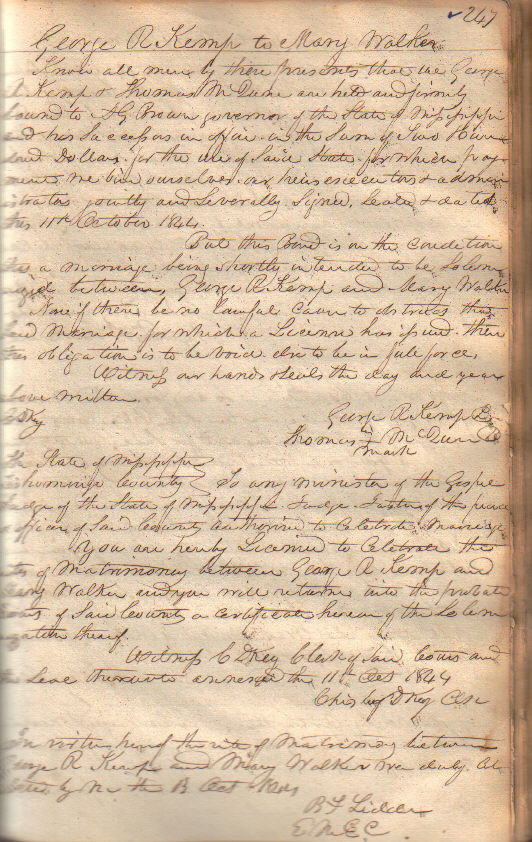 247
George R Kemp to Mary Walker
Know all men by these presents that we George
R Kemp & Thomas McDune are held and firmly
bound to A G Brown governor of the State of Mississippi
and his Successors in office in the Sum of Two thou
sand Dollars for the use of Said State for which pay
ment we bind ourselves our heirs executors & admin
istrators jointly and Severally Signed, Sealed & dated
this 11th October 1844
But this Bond is on the condition
a marriage being shortly intended to be Solem
nized between George R Kemp and Mary Walker
Now if there be no lawful cause to obstruct this
said Marriage for which a License has issued then
this obligation is to be void else to be in full force,
Witness our hands & seals the day and year
above written
D Key
George R Kemp
Thomas McDune
mark
The State of Mississippi
Tishomingo County To any minister of the Gospel
Judge of the State of Mississippi Judge Justice of the peace
officer of Said County authorised to Celebrate Marriage
You are hereby Licensed to Celebrate the
rites of Matrimony between George R Kemp and
Mary Walker and you will return into the probate
Court of Said County a Certificate hereon of the Solem
nization thereof
Witness C D Key Clerk of Said Court and
the Seal thereunto annexed the 11th Oct 1844
D Key Clk
By virtue hereof the rite of Matrimony between
George R Kemp and Mary Walker was duly
by me the 13 Oct
B F Liddon
E M E C